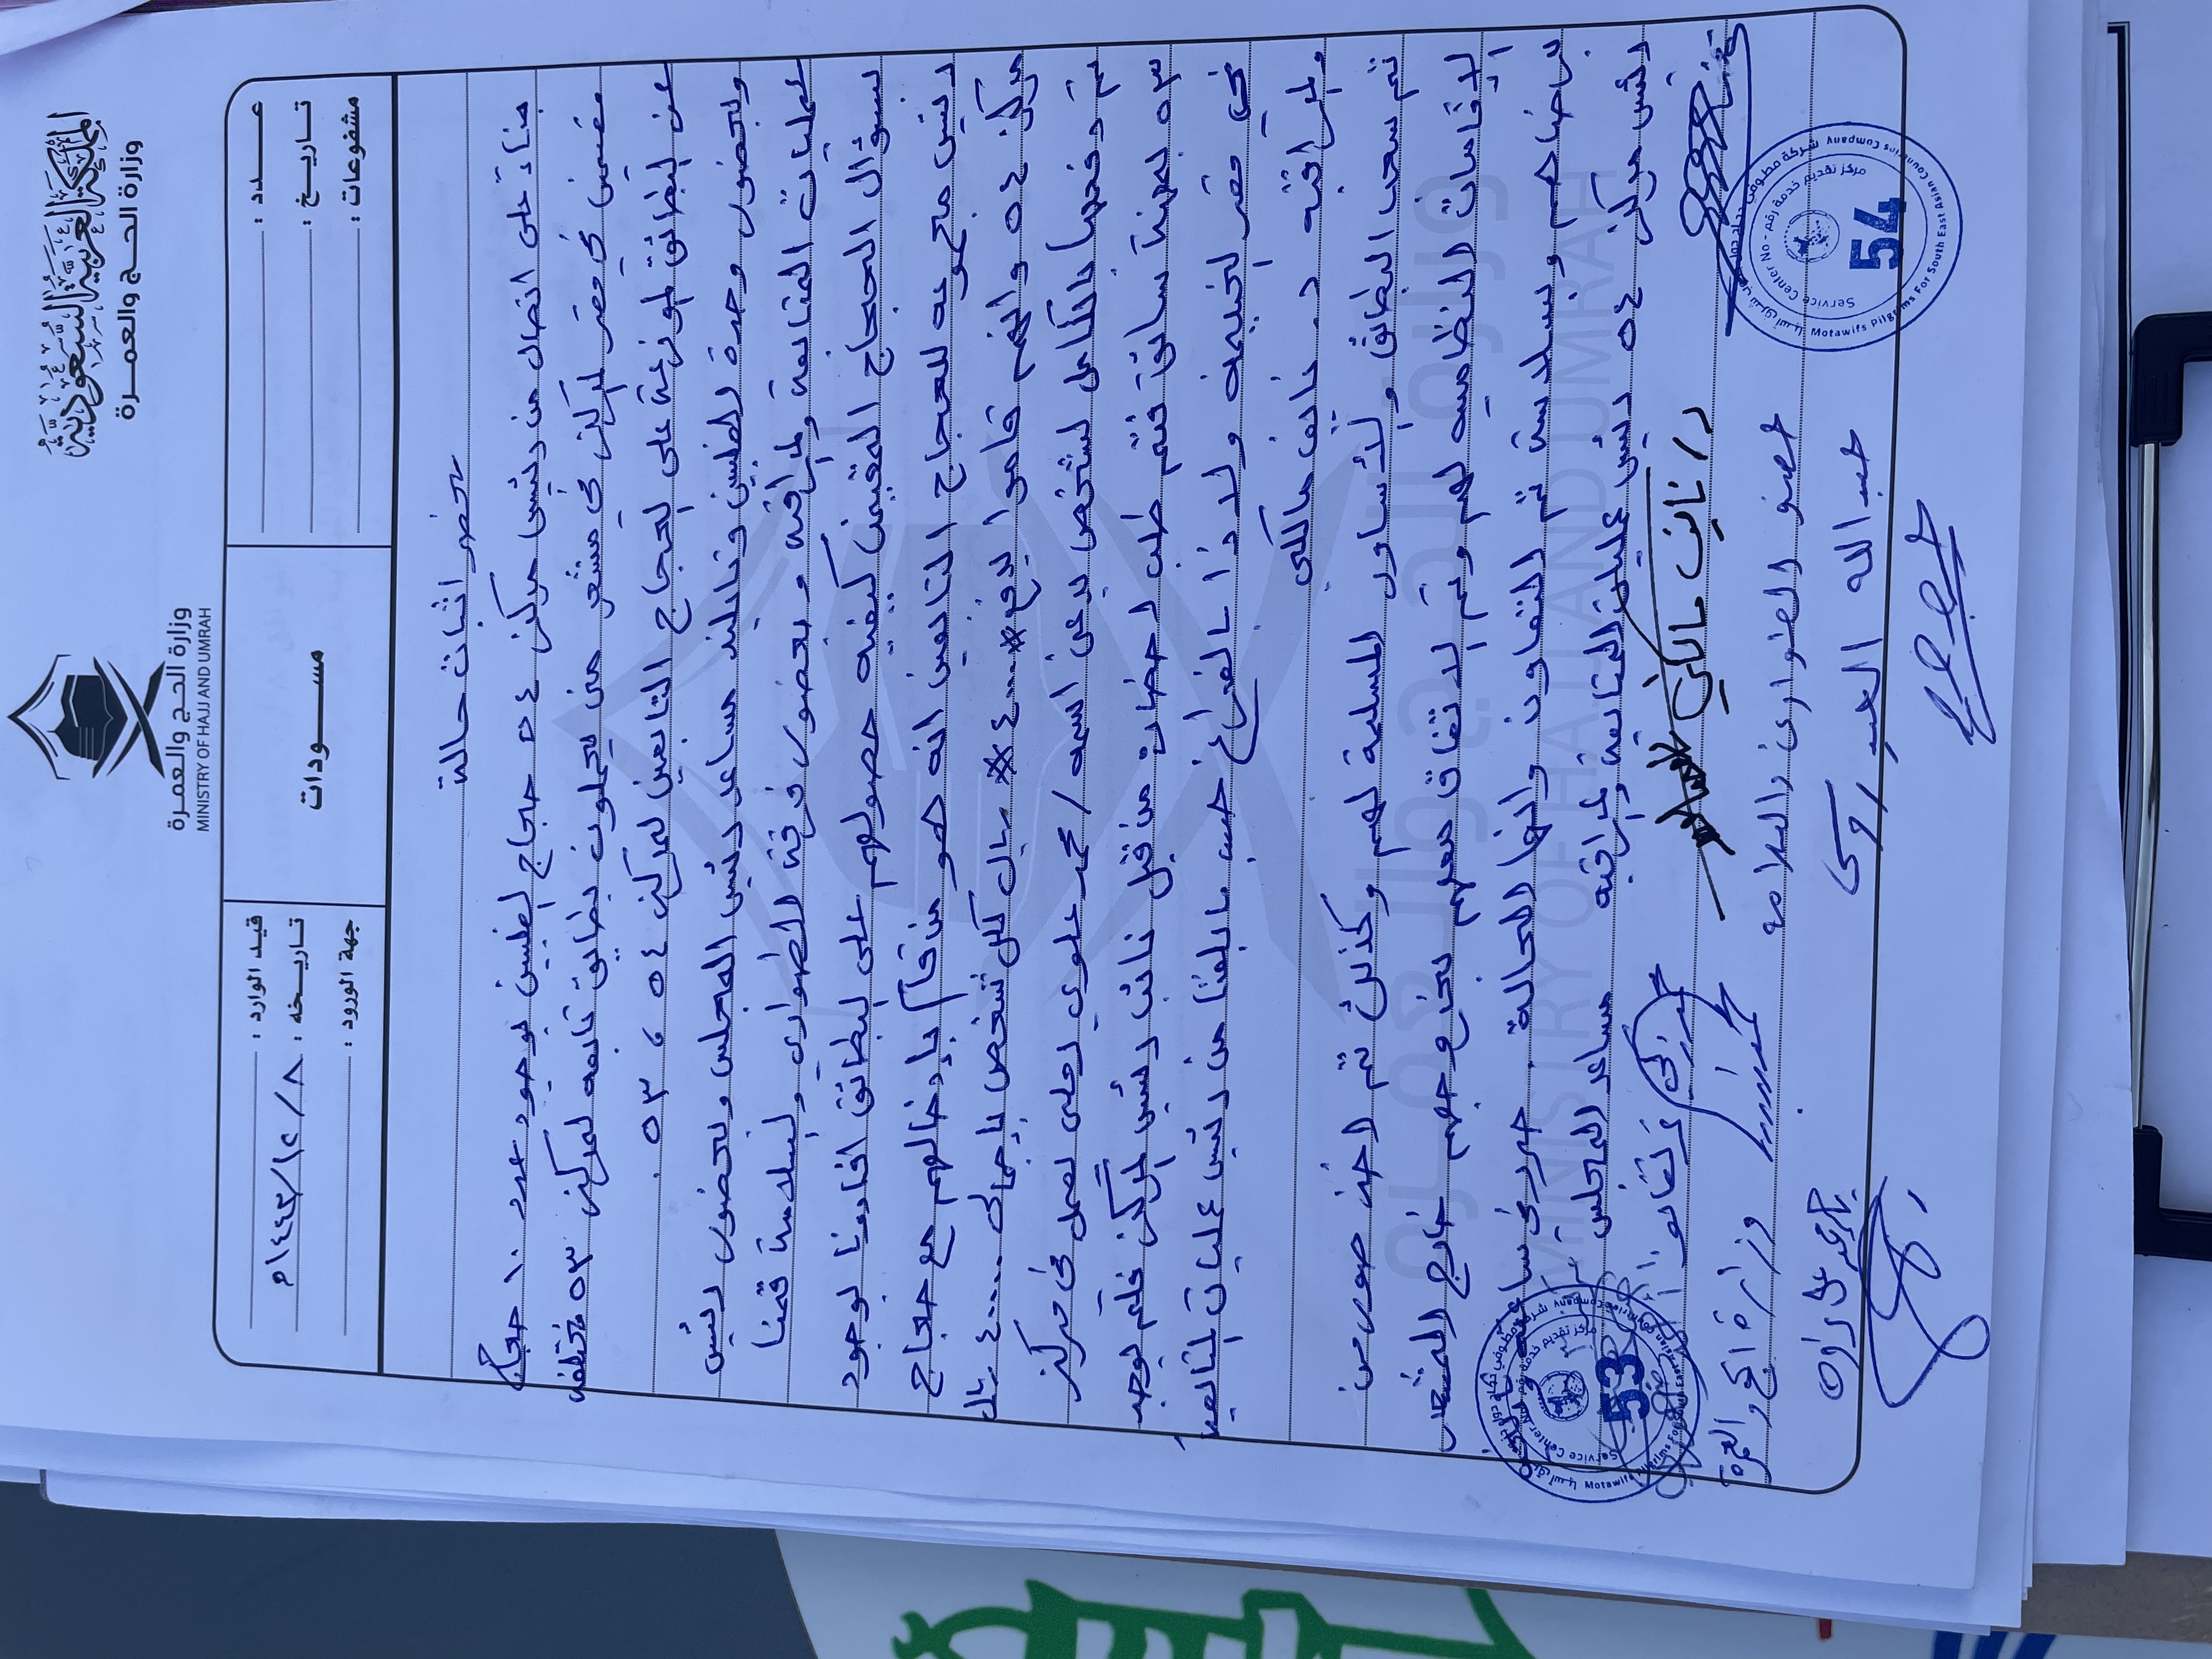 المملكة العربية السعودية
وزارة الحج والعمرة
وزارة الحج والعمرة
MINISTRY OF HAJJ AND UMRAH
عدد :
تاريخ :
مشفوعات :
مسودات
قيد الوارد :
تاريخه : ٨ / ١٢ / ١٤٤٣ه
جهة الورود :
محضر اثبات حالة
بناءً على اتصال من رئيس مركز ٥٤ حجاج الفلبين بوجود عدد ١٠ حجاج
مقيمين في مقر المركز في مشعر منى يحملون بطايق تابعه لمركز ٥٣ مختلفه
عن البطائق الموزعة على الحجاج التابعين لمركز ٥٤ ، ٥٣ .
وبحضور وحدة الفلبين وتايلند مساعد رئيس المجلس وبحضور رئيس
عمليات المتابعة والمراقبه وبحضور فرقة الطوارئ والسلامة قمنا
بسؤال الحجاج المقيمين كيفيه حصولهم على البطائق افادونا بوجود
رئيس مجموعه للحجاج التابعين انه هو من قام بإدخالهم مع حجاج
مركز ٥٤ وانهم قاموا بدفع # ٤٠٠٠ # ريال لكل شخص بإجمالي ٤٠٠٠٠ ريال
تم دفعها بالكامل لشخص يدعى اسمه / محمد علوي يعمل في مركز
٥٣ بمهنة سائق فتم طلب احضاره من قبل نائب رئيس المركز فلم يوجد
في مقر المخيمه ولاذا بالفرار حسب ما بلغنا من رئيس عمليات المتابعة
والمراقبه د. نايف مالكي
تم سحب البطائق والأساور المسلمة لهم وكذلك تم اخذ صور من
الإقامات النظاميه لهم وتم الاتفاق معهم بخروجهم خارج المشعر
برضاهم وبسلاسة تم التعاون وانها الحالة . حرر في ساعته
رئيس مركز ٥٤ رئيس عمليات المتابعة والمراقبه مساعد المجلس
د/ نايف مالكي محمد زكي
عضو الطوارئ والسلامه وزارة الحج والعمرة
عبدالله العيدروس
شركة مطوفي حجاج دول جنوب شرق آسيا
مركز تقديم خدمة رقم
Service Center No
53
Motawifs Pilgrims For South East Asian Countries Company
شركة مطوفي حجاج دول جنوب شرق آسيا
مركز تقديم خدمة رقم - Service Center No
54
Motawifs Pilgrims For South East Asian Countries Company
وزارة الحج والعمرة
MINISTRY OF HAJJ AND UMRAH